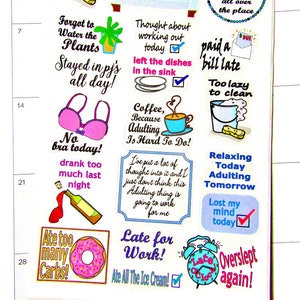 all over
the place
7
Forgot to
Water the
Plants
Thought about
working out
today
paid a
bill late
Stayed in pj's
all day!
left the dishes
in the sink
Too lazy
to clean
14
No
bra today!
Coffee,
Because
Adulting
Is Hard To Do!
drank too
much last
night
I've put a lot of
thought into it and I
just done think this
Adulting thing is
going to work
for me
Relaxing
Today
Adulting
Tomorrow
21
Lost my
mind
today
Ate too
many
Carbs!
Late for
Work!
Ate All The Ice Cream!
Late
Overslept
again!
28